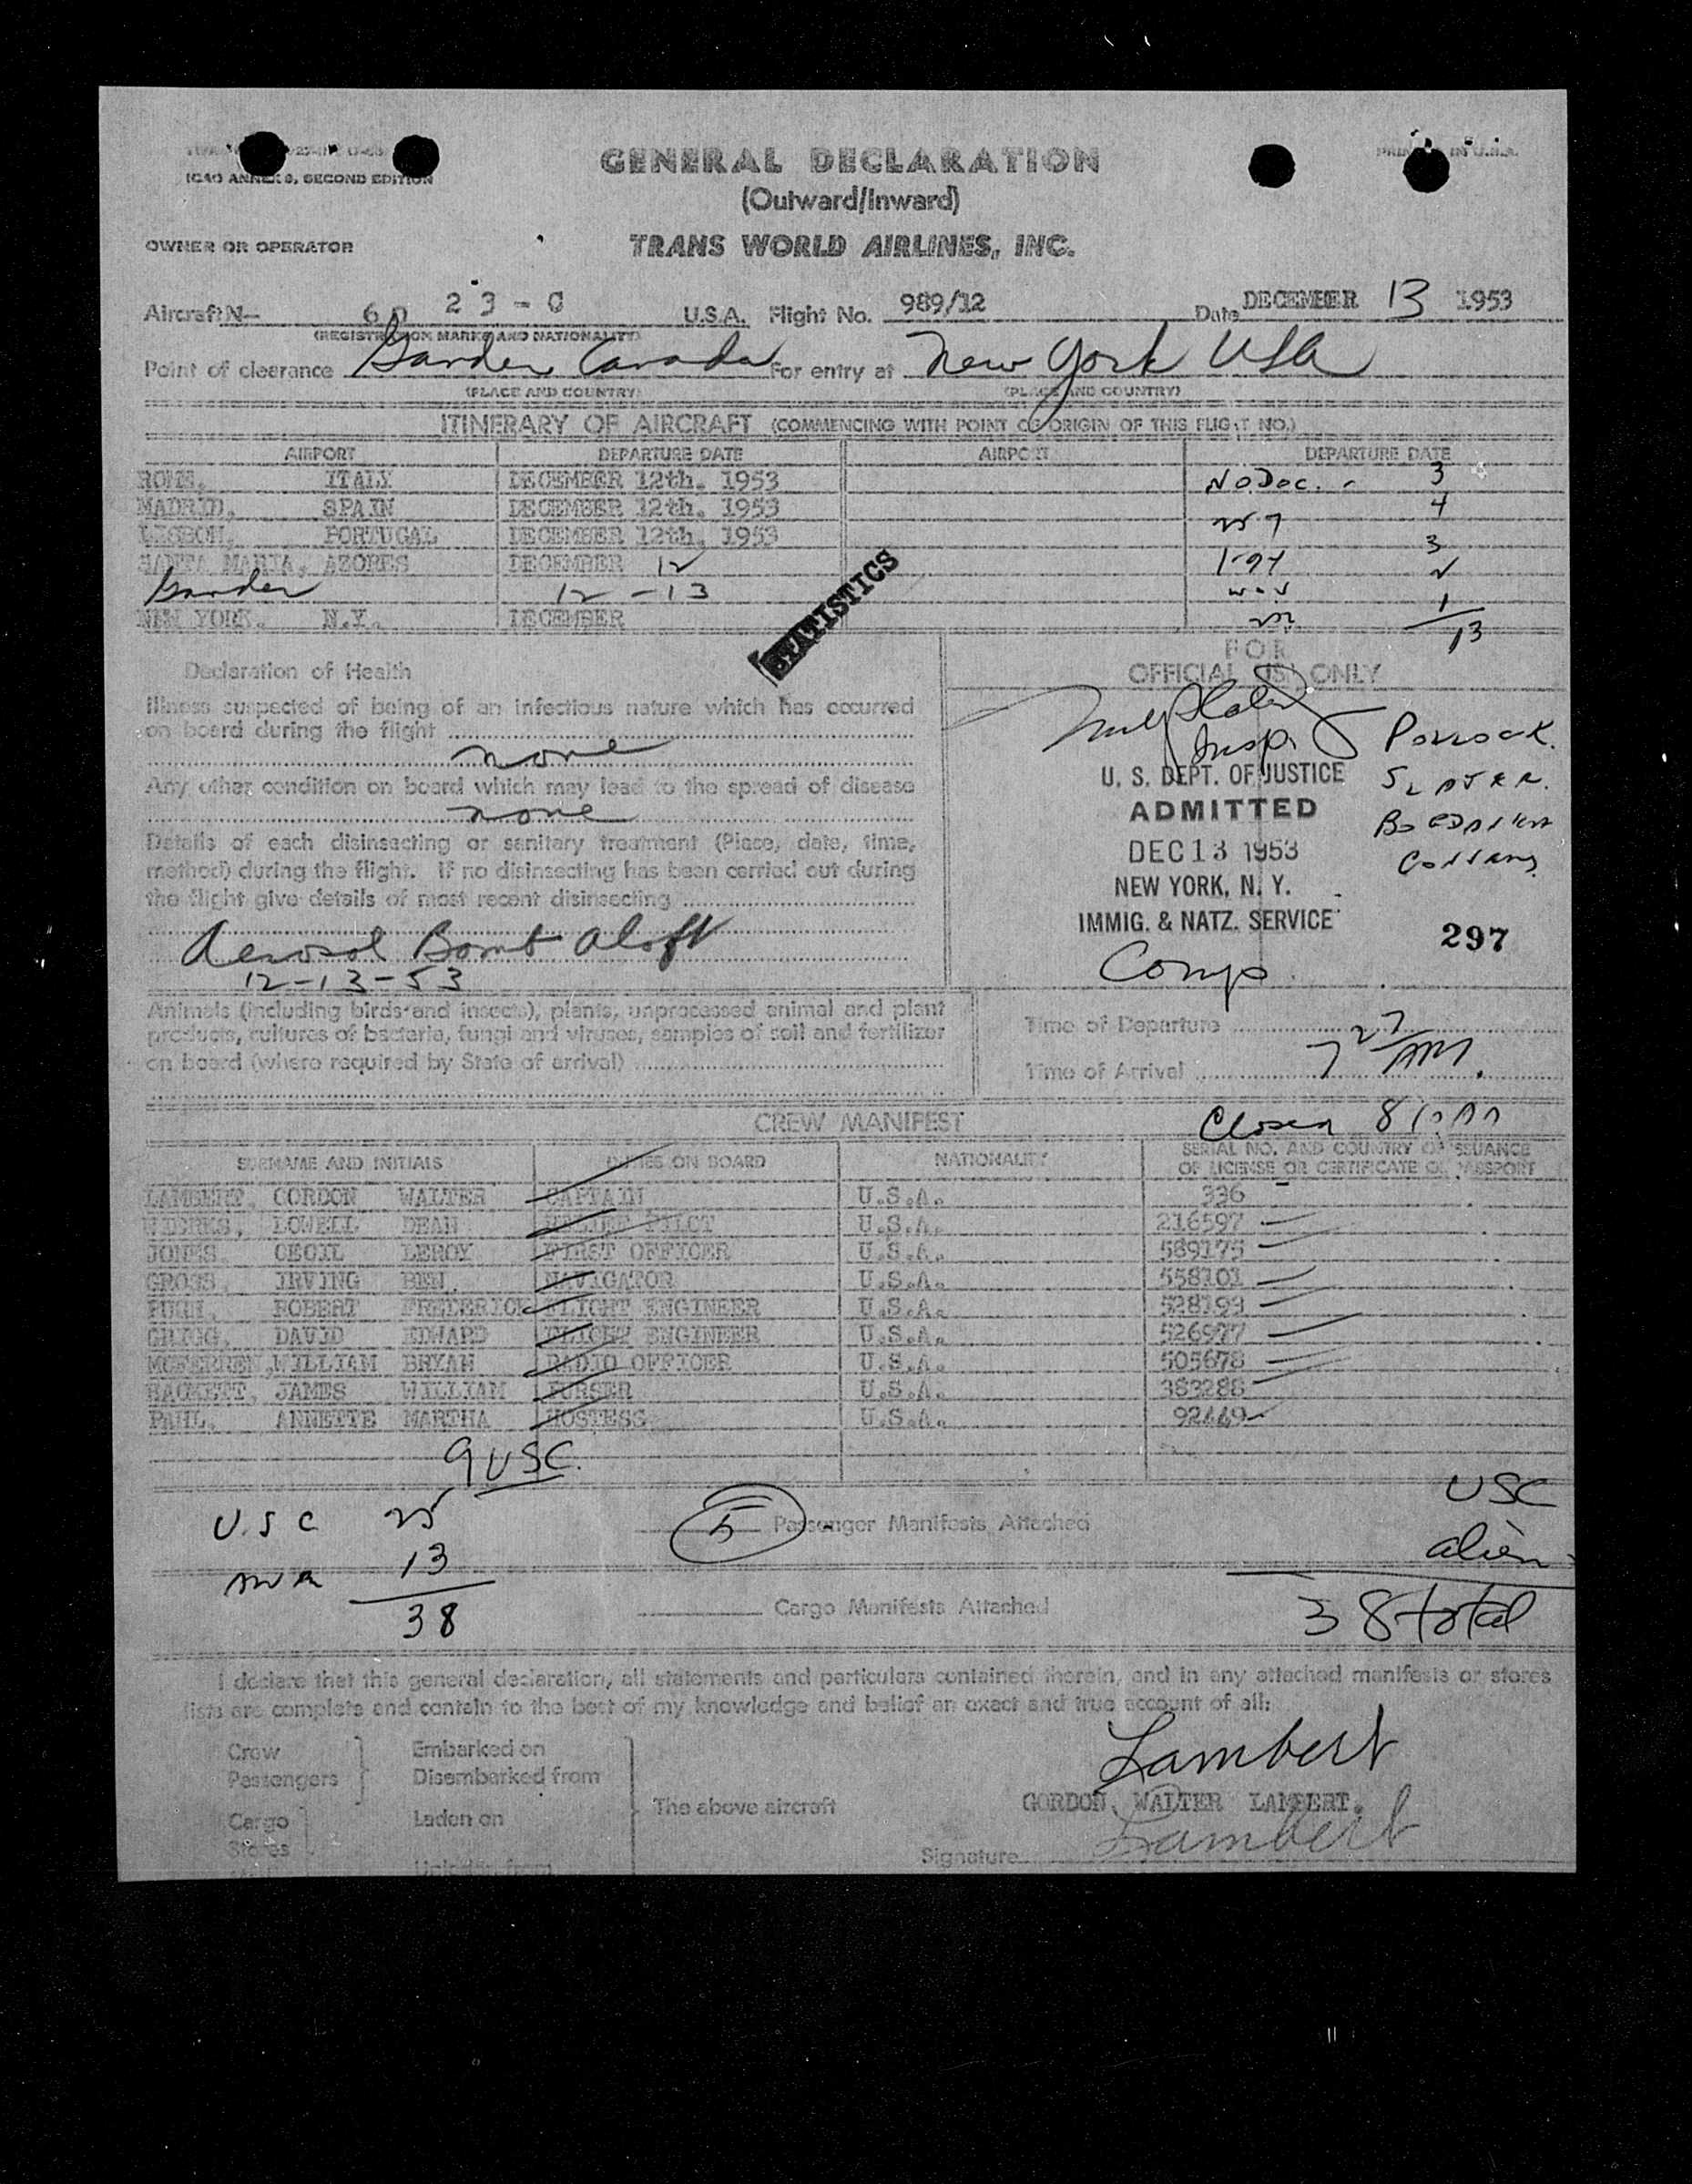 ICAO ANNEX 9, SECOND EDITION
PRINTED IN U.S.A.
GENERAL DECLARATION
(Outward/Inward)
OWNER OR OPERATOR
TRANS WORLD AIRLINES, INC.
Aircraft N- 60 23-C U.S.A. Flight No. 989/12 Date DECEMBER 13 1953
(REGISTRATION MARKS AND NATIONALITY)
Point of clearance Gander Canada For entry at New York USA
(PLACE AND COUNTRY) (PLACE AND COUNTRY)
ITINERARY OF AIRCRAFT (COMMENCING WITH POINT OF ORIGIN OF THIS FLIGHT NO.)
AIRPORT DEPARTURE DATE AIRPORT DEPARTURE DATE
ROME, ITALY DECEMBER 12th. 1953 No Doc. - 3
MADRID, SPAIN DECEMBER 12th. 1953 4
LISBON, PORTUGAL DECEMBER 12th. 1953 3
SANTA MARIA, AZORES DECEMBER 12
Gander 12-13 1
NEW YORK, N.Y. DECEMBER 13
STATISTICS
FOR
OFFICIAL USE ONLY
Declaration of Health
Illness suspected of being of an infectious nature which has occurred
on board during the flight
none
Any other condition on board which may lead to the spread of disease
none
Details of each disinsecting or sanitary treatment (Place, date, time,
method) during the flight. If no disinsecting has been carried out during
the flight give details of most recent disinsecting
Aerosol Bomb aloft
12-13-53
Insp.
U. S. DEPT. OF JUSTICE
ADMITTED
DEC 13 1953
NEW YORK, N. Y.
IMMIG. & NATZ. SERVICE
SLATER.
297
Comp
Animals (including birds and insects), plants, unprocessed animal and plant
products, cultures of bacteria, fungi and viruses, samples of soil and fertilizer
on board (where required by State of arrival)
Time of Departure
Time of Arrival 7 27 AM.
CREW MANIFEST
Closed
SURNAME AND INITIALS DUTIES ON BOARD NATIONALITY SERIAL NO. AND COUNTRY OF ISSUANCE
OF LICENSE OR CERTIFICATE OR PASSPORT
LAMBERT, GORDON WALTER CAPTAIN U.S.A. 336
LOWELL DEAN RELIEF PILOT U.S.A. 216597
JONES, CECIL LEROY FIRST OFFICER U.S.A. 589175
GROSS, IRVING BEN. NAVIGATOR U.S.A. 558101
PUGH, ROBERT FREDERICK FLIGHT ENGINEER U.S.A. 528193
GRIGG, DAVID EDWARD FLIGHT ENGINEER U.S.A. 526977
WILLIAM BRYAN RADIO OFFICER U.S.A. 505678
HACKETT, JAMES WILLIAM PURSER U.S.A. 383288
PAHL, ANNETTE MARTHA HOSTESS U.S.A. 92449
9 USC.
USC 25
13
38
5 Passenger Manifests Attached
Cargo Manifests Attached
USC
alien
38 total
I declare that this general declaration, all statements and particulars contained therein, and in any attached manifests or stores
lists are complete and contain to the best of my knowledge and belief an exact and true account of all:
Crew
Passengers
Embarked on
Disembarked from
Cargo
Stores
Laden on
The above aircraft
Lambert
GORDON WALTER LAMBERT.
Signature Lambert